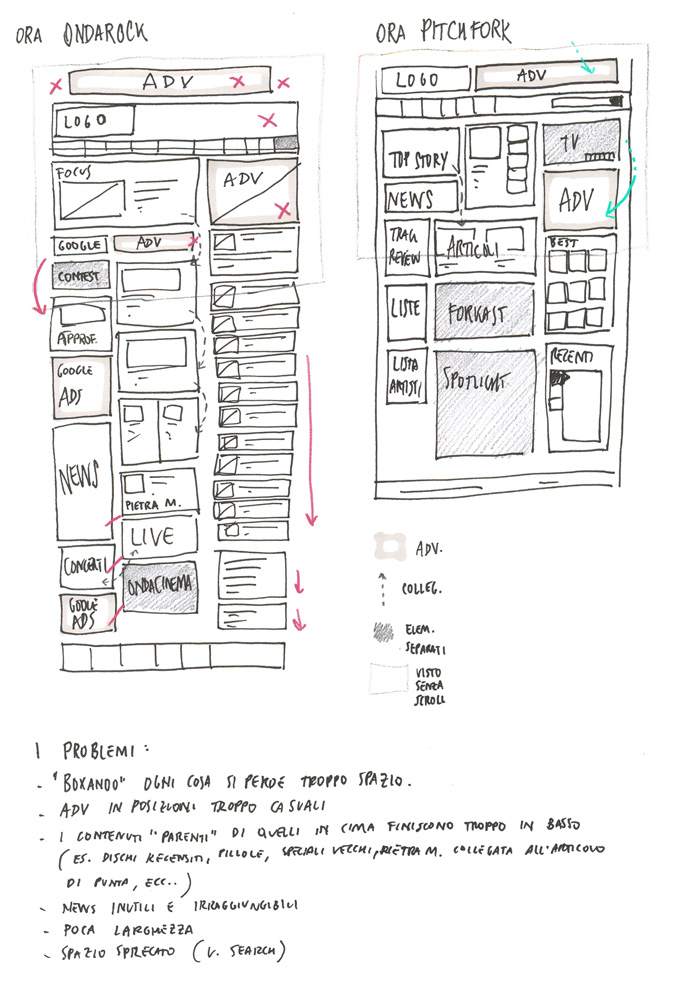 ORA ONDAROCK
ADV
LOGO
FOCUS
ADV
GOOGLE
ADV
CONTEST
APPROF.
GOOGLE
ADS
NEWS
PIETRA M.
LIVE
CONCERTI
ONDACINEMA
GOOGLE
ADS
ORA PITCHFORK
LOGO
ADV
TOP STORY
TV
NEWS
ADV
TRACK
REVIEW
ARTICOLI
BEST
LISTE
FORKAST
LISTA
ARTISTI
SPOTLIGHT
RECENTI
ADV.
COLLEG.
ELEM.
SEPARATI
VISTO
SENZA
SCROLL
I PROBLEMI:
- "BOXANDO" OGNI COSA SI PERDE TROPPO SPAZIO.
- ADV IN POSIZIONI TROPPO CASUALI
- I CONTENUTI "PARENTI" DI QUELLI IN CIMA FINISCONO TROPPO IN BASSO
(ES. DISCHI RECENSITI, PILLOLE, SPECIALI VECCHI, PIETRA M. COLLEGATA ALL'ARTICOLO
DI PUNTA, ECC..)
- NEWS INUTILI E IRRAGGIUNGIBILI
- POCA LARGHEZZA
- SPAZIO SPRECATO (V. SEARCH)